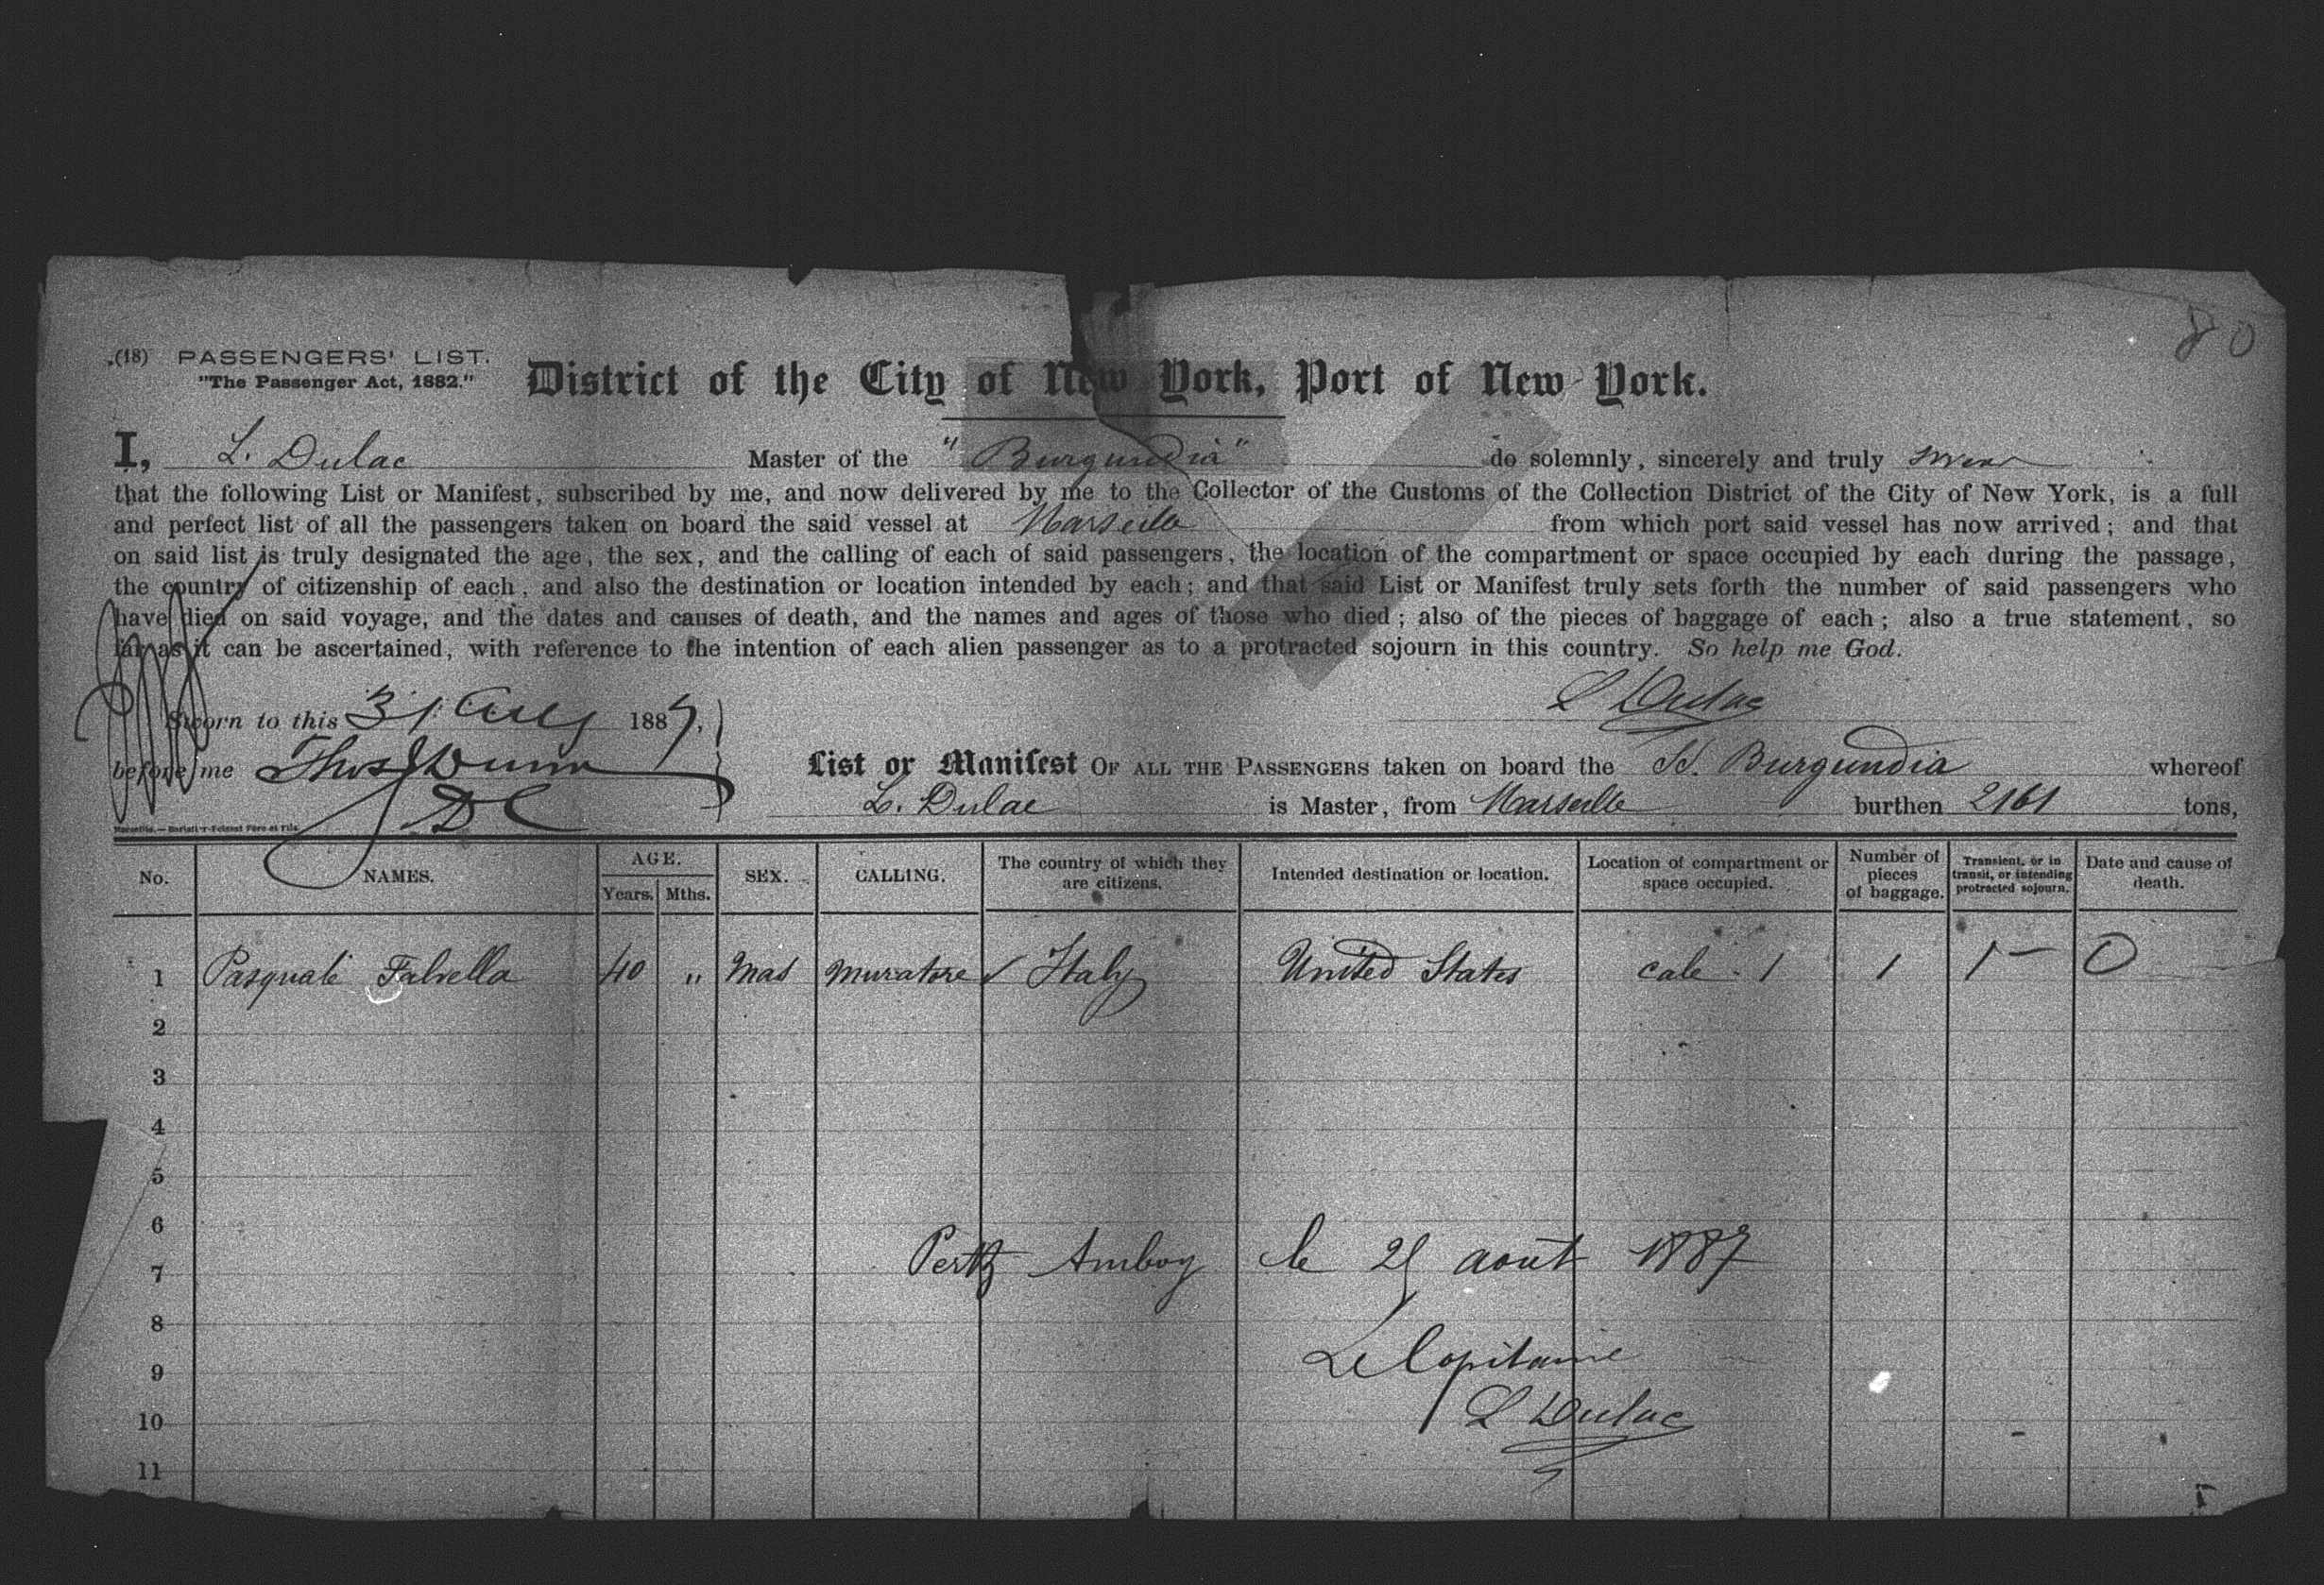 80
(18) PASSENGERS' LIST.
"The Passenger Act, 1882."
District of the City of New York, Port of New York.
I, L. Dulac Master of the "Burgundia" do solemnly, sincerely and truly swear
that the following List or Manifest, subscribed by me, and now delivered by me to the Collector of the Customs of the Collection District of the City of New York, is a full
and perfect list of all the passengers taken on board the said vessel at Marseille from which port said vessel has now arrived; and that
on said list is truly designated the age, the sex, and the calling of each of said passengers, the location of the compartment or space occupied by each during the passage,
the country of citizenship of each, and also the destination or location intended by each; and that said List or Manifest truly sets forth the number of said passengers who
have died on said voyage, and the dates and causes of death, and the names and ages of those who died; also of the pieces of baggage of each; also a true statement, so
far as it can be ascertained, with reference to the intention of each alien passenger as to a protracted sojourn in this country. So help me God.
L Dulac
Sworn to this 31 Aug 1887,
before me Thos J Dunn
DC
List or Manifest OF ALL THE PASSENGERS taken on board the St. Burgundia whereof
L. Dulac is Master, from Marseille burthen 2161 tons,
No. NAMES. AGE. Years. Mths. SEX. CALLING. The country of which they are citizens. Intended destination or location. Location of compartment or space occupied. Number of pieces of baggage. Transient, or in transit, or intending protracted sojourn. Date and cause of death.
1 Pasquale Falvella 40 " Mas Muratore Italy United States cale 1 1 1 — 0
2
3
4
5
6
Perth Amboy le 25 août 1887
7
8
Le Capitaine
9
L Dulac
10
11